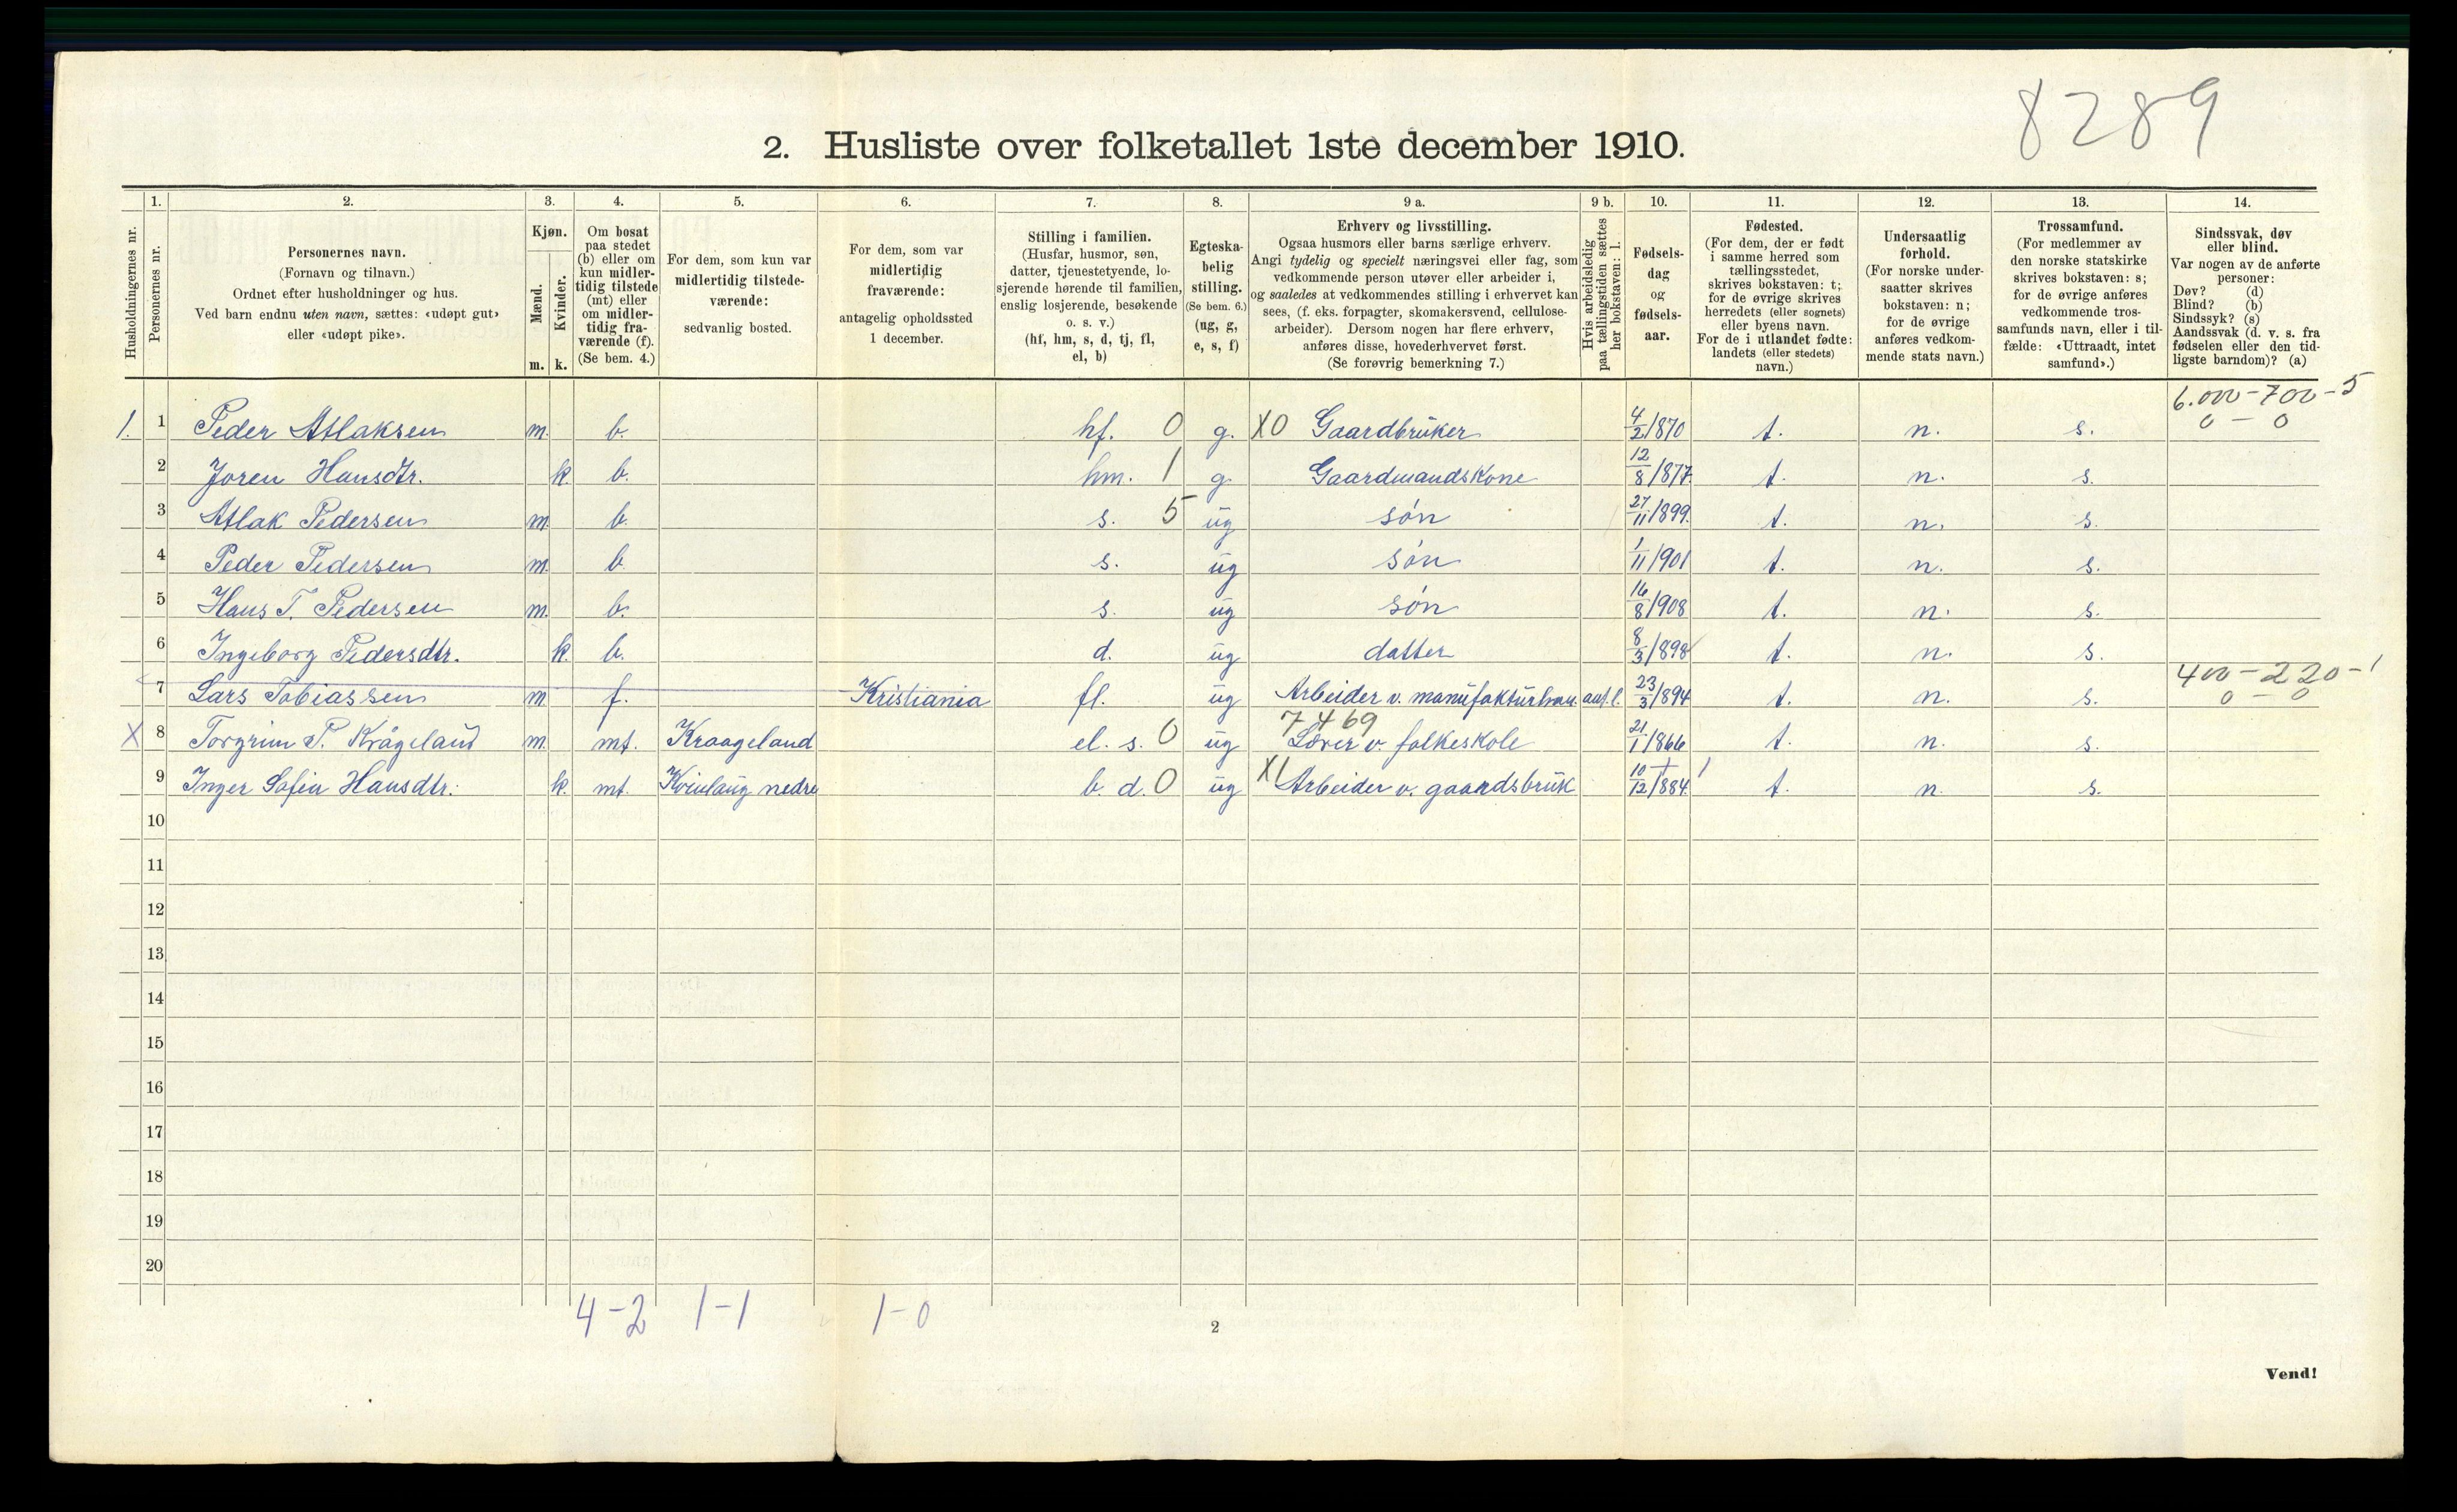 8289
2. Husliste over folketallet 1ste december 1910.
Husholdningernes nr.
1. Personernes nr.
2. Personernes navn.
(Fornavn og tilnavn.)
Ordnet efter husholdninger og hus.
Ved barn endnu uten navn, sættes: «udøpt gut»
eller «udøpt pike».
3. Kjøn.
Mænd. m.
Kvinder. k.
4. Om bosat
paa stedet
(b) eller om
kun midler-
tidig tilstede
(mt) eller
om midler-
tidig fra-
værende (f).
(Se bem. 4.)
5. For dem, som kun var
midlertidig tilstede-
værende:
sedvanlig bosted.
6. For dem, som var
midlertidig
fraværende:
antagelig opholdssted
1 december.
7. Stilling i familien.
(Husfar, husmor, søn,
datter, tjenestetyende, lo-
sjerende hørende til familien,
enslig losjerende, besøkende
o. s. v.)
(hf, hm, s, d, tj, fl,
el, b)
8. Egteska-
belig
stilling.
(Se bem. 6.)
(ug, g,
e, s, f)
9 a. Erhverv og livsstilling.
Ogsaa husmors eller barns særlige erhverv.
Angi tydelig og specielt næringsvei eller fag, som
vedkommende person utøver eller arbeider i,
og saaledes at vedkommendes stilling i erhvervet kan
sees, (f. eks. forpagter, skomakersvend, cellulose-
arbeider). Dersom nogen har flere erhverv,
anføres disse, hovederhvervet først.
(Se forøvrig bemerkning 7.)
9 b. Hvis arbeidsledig
paa tællingstiden sættes
her bokstaven: l.
10. Fødsels-
dag
og
fødsels-
aar.
11. Fødested.
(For dem, der er født
i samme herred som
tællingsstedet,
skrives bokstaven: t;
for de øvrige skrives
herredets (eller sognets)
eller byens navn.
For de i utlandet fødte:
landets (eller stedets)
navn.)
12. Undersaatlig
forhold.
(For norske under-
saatter skrives
bokstaven: n;
for de øvrige
anføres vedkom-
mende stats navn.)
13. Trossamfund.
(For medlemmer av
den norske statskirke
skrives bokstaven: s;
for de øvrige anføres
vedkommende tros-
samfunds navn, eller i til-
fælde: «Uttraadt, intet
samfund».)
14. Sindssvak, døv
eller blind.
Var nogen av de anførte
personer:
Døv? (d)
Blind? (b)
Sindssyk? (s)
Aandssvak (d. v. s. fra
fødselen eller den tid-
ligste barndom)? (a)
6.000-700-5
1. 1 Peder Atlaksen m. b. hf. 0 g. X0 Gaardbrúker 4/2/870 t. n. s. 0 - 0
2 Joren Hansdtr. k. b. hm. 1 g. Gaardmandskone 12/8/877. t. n. s.
3 Atlak Pedersen m. b. s. 5 ug søn 27/11/899. t. n. s.
4 Peder Pedersen m. b. s. ug søn 1/11/901 t. n. s.
5 Hans T. Pedersen m. b. s. ug søn 16/8/908 t. n. s.
6 Ingeborg Pedersdtr. k. b. d. ug datter 8/3/898 t. n. s.
400-220-1
7 Lars Tobiassen m. f. Kristiania fl. ug Arbeider v. manufakturhan. l. 23/3/894 t. n. s. 0 - 0
7469
X 8 Torgrim P. Krågeland m. mt. Kraageland el. s. 0 ug Lærer v. folkeskole 21/1/866 t. n. s.
9 Inger Sofia Hansdtr. k. mt. Kvinlaug nedre b. d. 0 ug X1 Arbeider v. gaardsbruk 10/12/884. t. n. s.
10
11
12
13
14
15
16
17
18
19
20
4-2 1-1 1-0
2
Vend!